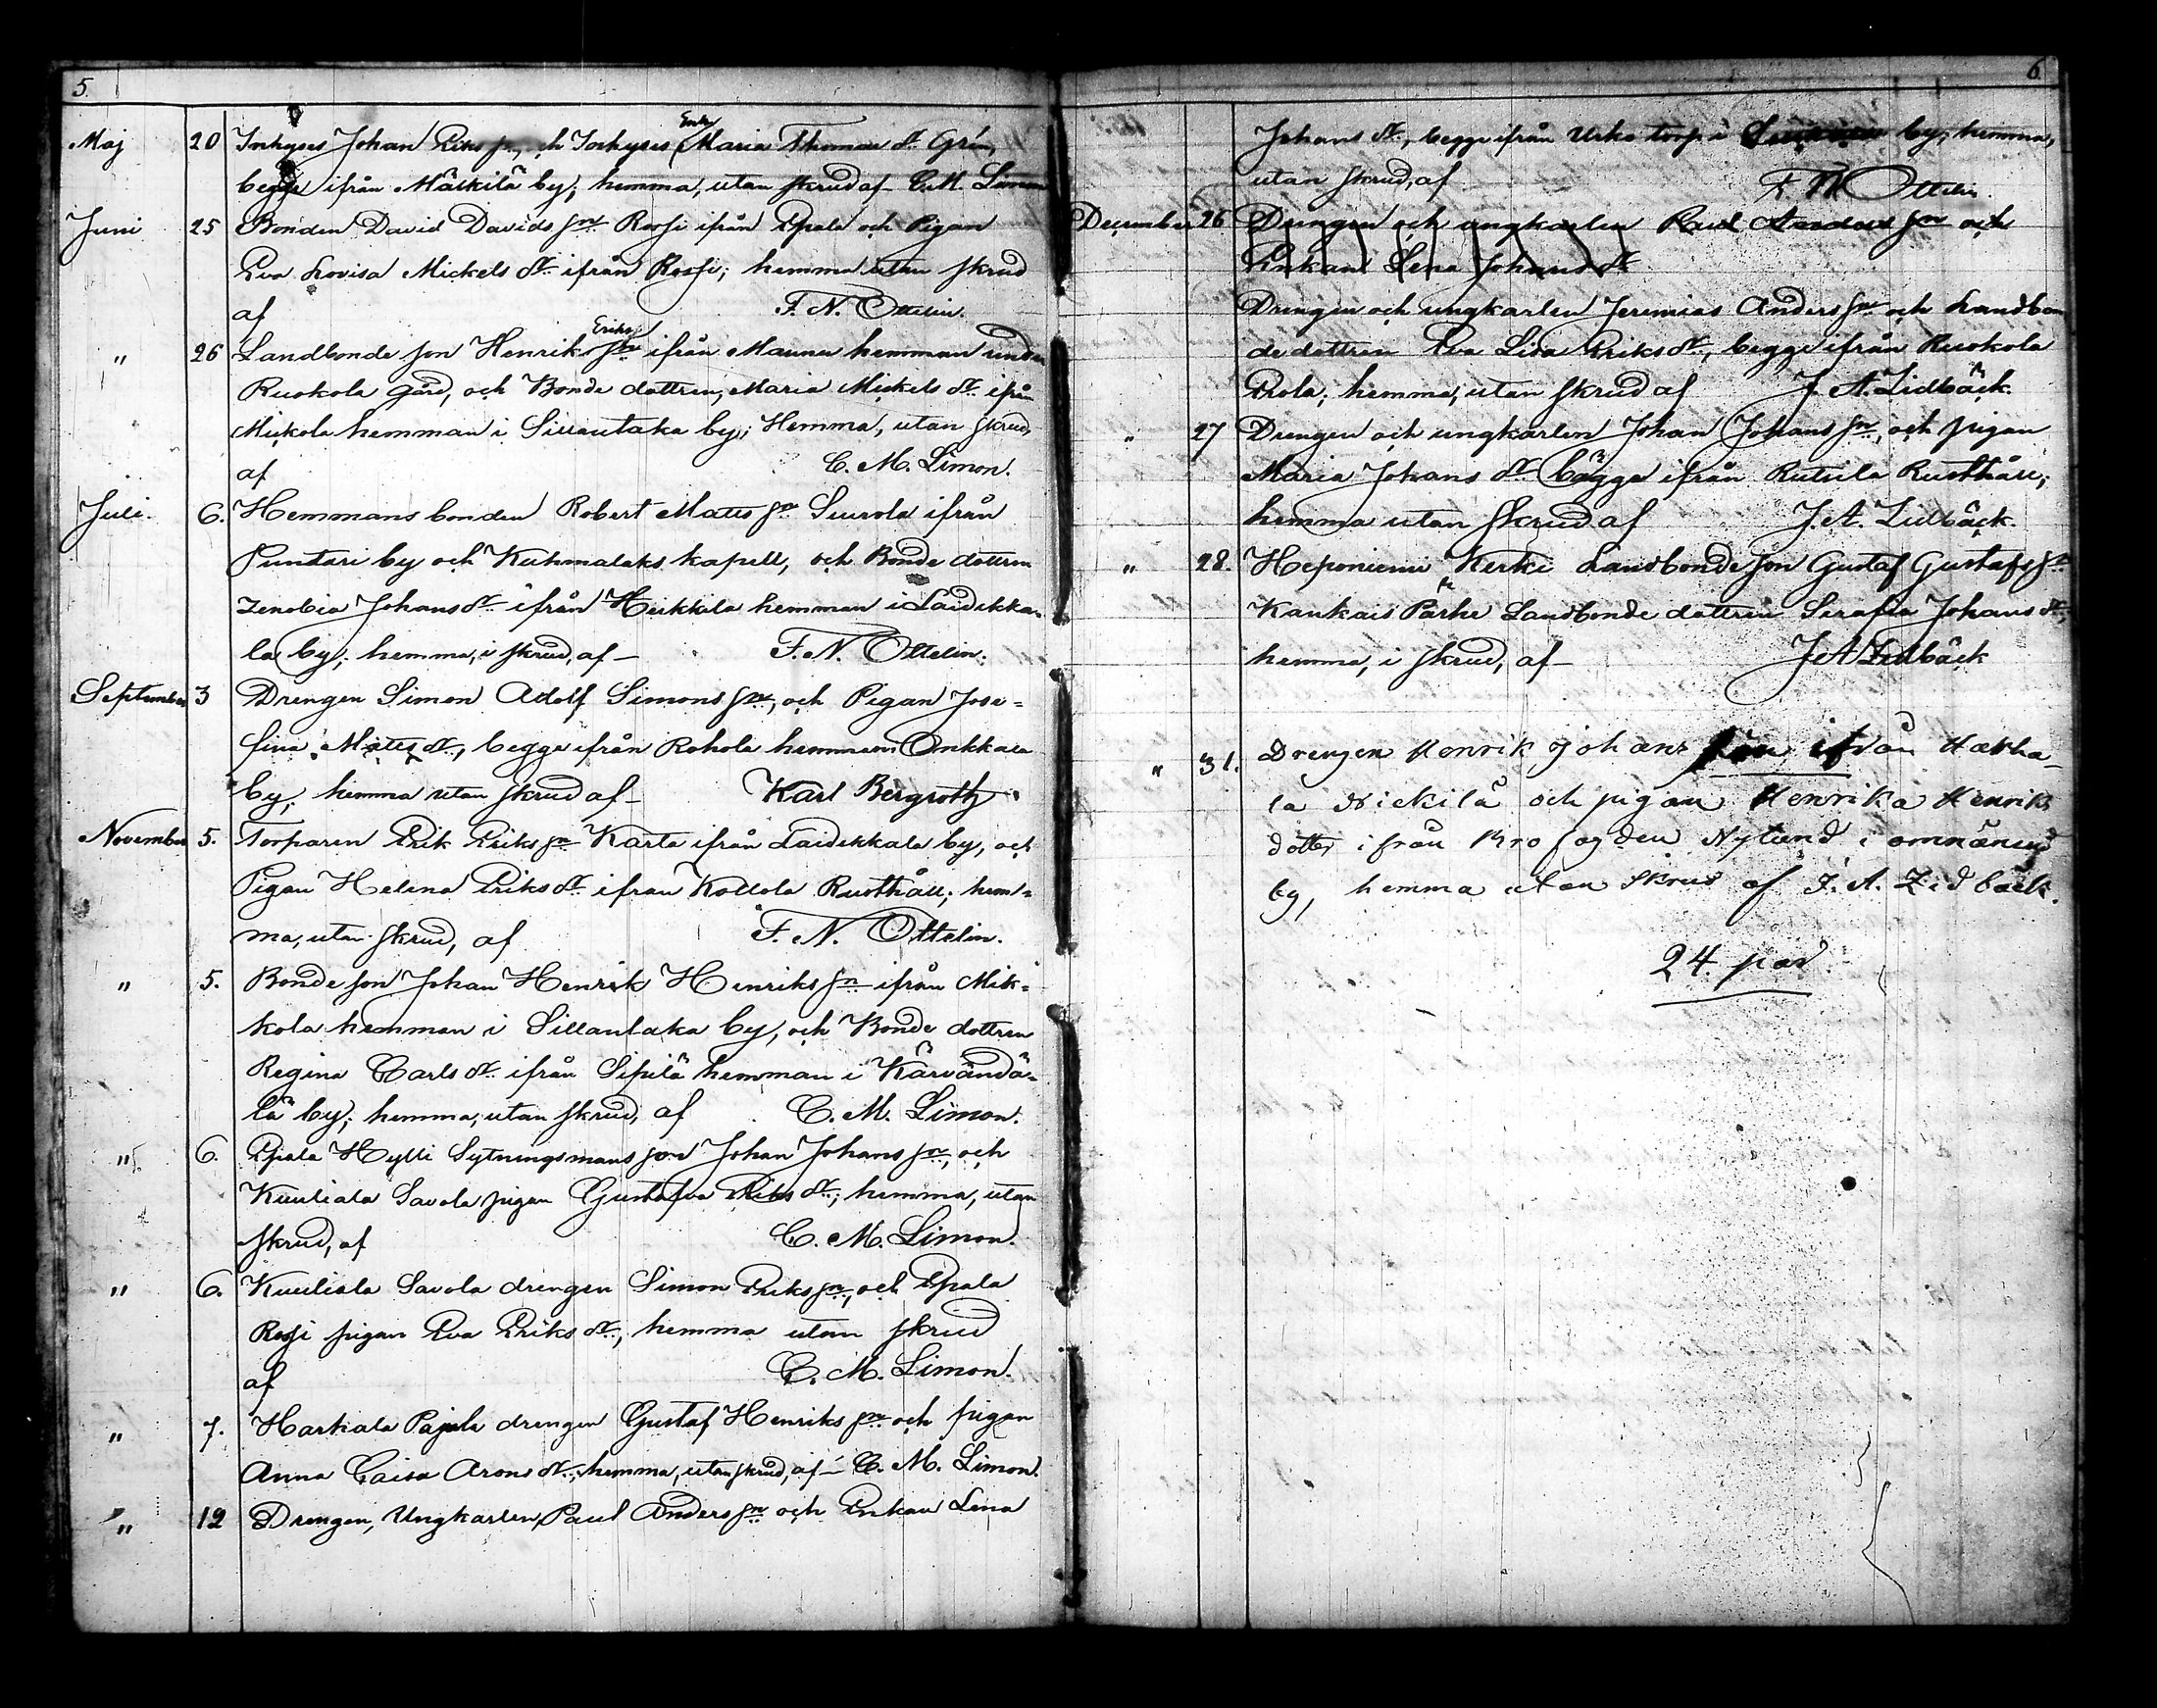 5.
Maj 20 Inhyses Johan Eriks sn, och Inhyses Enk. Maria Thomas dr Grén,
begge ifrån Mäskilä by; hemma, utan skrud af C. M. Limon
Juni 25 Bonden David Davids sn Rossi ifrån Epala och Pigan
Eva Lovisa Mickels dr ifrån Rossi; hemma utan skrud
af F. N. Ottelin.
" 26 Landbonde son Henrik Eriks sn ifrån Maunu hemman under
Ruokola gård, och Bonde dottren, Maria Mickels dr ifrån
Mickola hemman i Sillantaka by; Hemma, utan skrud,
af C. M. Limon.
Juli. 6. Hemmans bonden Robert Matts sn Suurola ifrån
Puntari by och Kuhmalaks kapell, och Bonde dottren
Zenobia Johans dr ifrån Heikkila hemman i Laidikka-
la by; hemma, i skrud, af – F. N. Ottelin.
September 3 Drengen Simon Adolf Simons sn, och Pigan Jose=
fina Matts dr, begge ifrån Rohola hemman Onkkala
by; hemma utan skrud af – Karl Bergroth
November 5. Torparen Erik Eriks sn Karta ifrån Laidikkala by, och
Pigan Helena Eriks dr ifrån Kollola Rusthåll; hem=
ma, utan skrud, af F. N. Ottelin.
" 5. Bonde son Johan Henrik Henriks sn ifrån Mik=
kola hemman i Sillantaka by, och Bonde dottren
Regina Carls dr ifrån Sipilä hemman i Kärvändä=
lä by; hemma, utan skrud, af C. M. Limon.
" 6. Epala Hylli Sytningsmans son Johan Johans sn, och
Kuuliala Savola pigan Gustafva Eriks dr; hemma, utan
skrud, af C. M. Limon.
" 6. Kuuliala Savola drengen Simon Eriks sn, och Epala
Rossi pigan Eva Eriks dr, hemma utan skrud
af C. M. Limon.
" 7. Harhala Pajula drengen Gustaf Henriks sn och pigan
Anna Caisa Arons dr, hemma, utan skrud, af – C. M. Limon.
" 12 Drengen, Ungkarlen, Paul Anders sn och Enkan Lena
6.
Johans dr, begge ifrån Urko torp i by; hemma,
utan skrud, af F. N. Ottelin.
December 26 Drengen och ungkarlen Paul Anders sn och
Enkan Lena Johans dr
Drengen och ungkarlen Jeremias Anders sn och Landbon
de dottren Eva Lisa Eriks dr, begge ifrån Ruokola
Erola; hemma, utan skrud af J. A. Lidbäck.
" 27 Drengen och ungkarlen Johan Johans sn, och pigan
Maria Johans dr bägge ifrån Rutula Rusthåll;
hemma utan skrud af J. A. Lidbäck.
" 28. Heponiemi Kerki Landbonde son Gustaf Gustafs sn
Kankais Pärhe Landbonde dottren Serafia Johans dr;
hemma, i skrud, af – J A Lidbäck
" 31. Drengen Henrik Johans son ifrån Harha-
la Nickilä och pigan Henrika Henriks
dotter ifrån Nylund i
by, hemma utan skrud af J. A. Lidbäck.
24 par